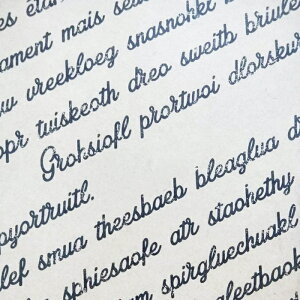 ament mais
vreekloeg snasnohki
opr tuiskeoth dreo sweitb briule
Groksiofl prortwoi dlorskur
pyortruitl.
lef smua theesbaeb bleaglua d
sphiesaofe atr staohethy
spirgluechuakl